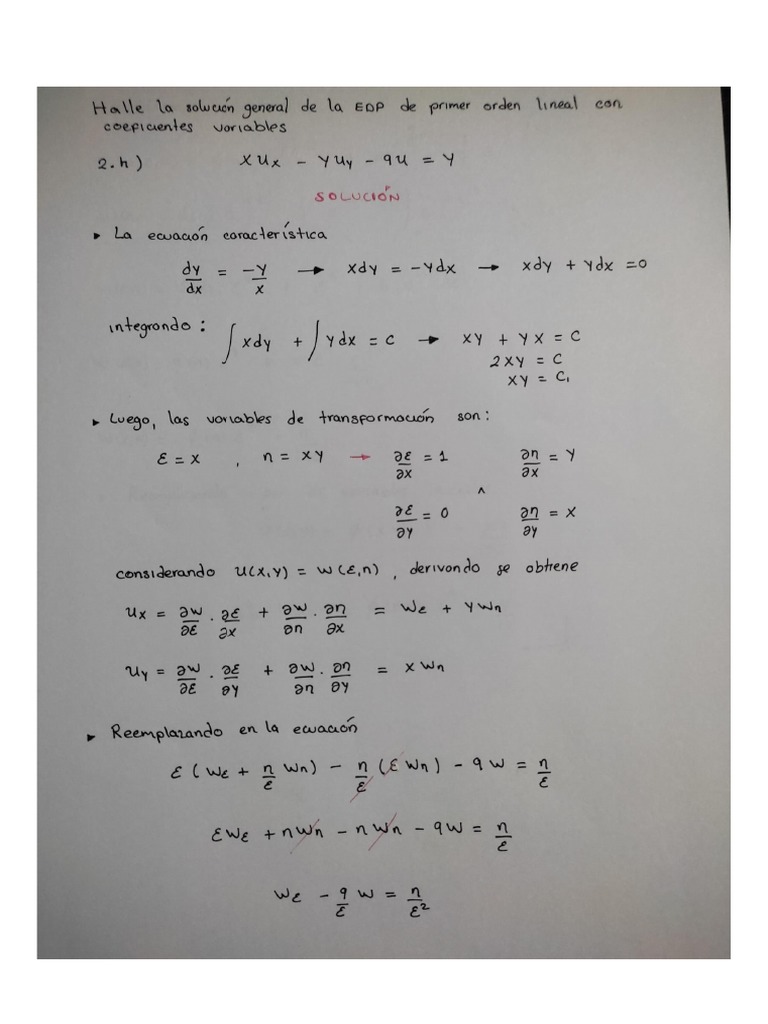 Halle la solución general de la EDP de primer orden lineal con
coeficientes variables
2.h) xux - yuy - 9u = y
SOLUCIÓN
▸ La ecuación característica
dy/dx = -y/x → xdy = -ydx → xdy + ydx = 0
integrando: ∫xdy + ∫ydx = c → xy + yx = c
2xy = c
xy = c₁
▸ Luego, las variables de transformación son:
ε = x , n = xy → ∂ε/∂x = 1 ∂n/∂x = y
^
∂ε/∂y = 0 ∂n/∂y = x
considerando u(x,y) = w(ε,n), derivando se obtiene
ux = ∂w/∂ε · ∂ε/∂x + ∂w/∂n · ∂n/∂x = wε + ywn
uy = ∂w/∂ε · ∂ε/∂y + ∂w/∂n · ∂n/∂y = xwn
▸ Reemplazando en la ecuación
ε(wε + n/ε wn) - n/ε (εwn) - 9w = n/ε
εwε + nwn - nwn - 9w = n/ε
wε - 9/ε w = n/ε²